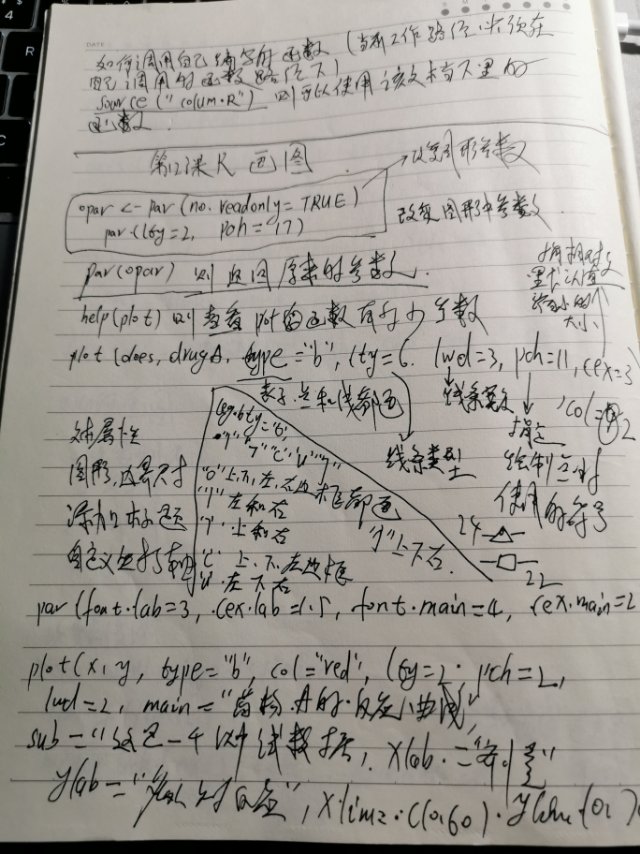 DATE
如何调用自己编写的函数（当前工作路径必须在
自己调用的函数路径下）
source("colum.R") 则可以使用该文本当下里的
函数
第12课 R 画图
改变图形参数
opar <- par(no.readonly=TRUE)
par(lty=2, pch=17)
改变图形中参数
par(opar) 则返回原来的参数
help(plot) 则查看plot函数有多少参数
指相对于
默认值
缩小的
大小
plot(does, drugA, type="b", lty=6 lwd=3, pch=11, cex=3)
表示点和线都画
线条宽度
col= 2
指定
绘制点时
使用的符号
线条类型
文本属性
图形，边界尺寸
添加文本标题
自定义坐标轴
"o"上，下，左，右边框都画
"l"左和右
"7"上和右
"c"上、下、左边框
"u"左下右
"]"上下右
24
22
par(font.lab=3, cex.lab=1.5, font.main=4, cex.main=2
plot(x, y, type="b", col="red", lty=2, pch=2,
lwd=2, main="药物A的反应曲线",
sub="这是一个假数据", xlab="剂量"
ylab="反应", xlim=c(0,60), ylim